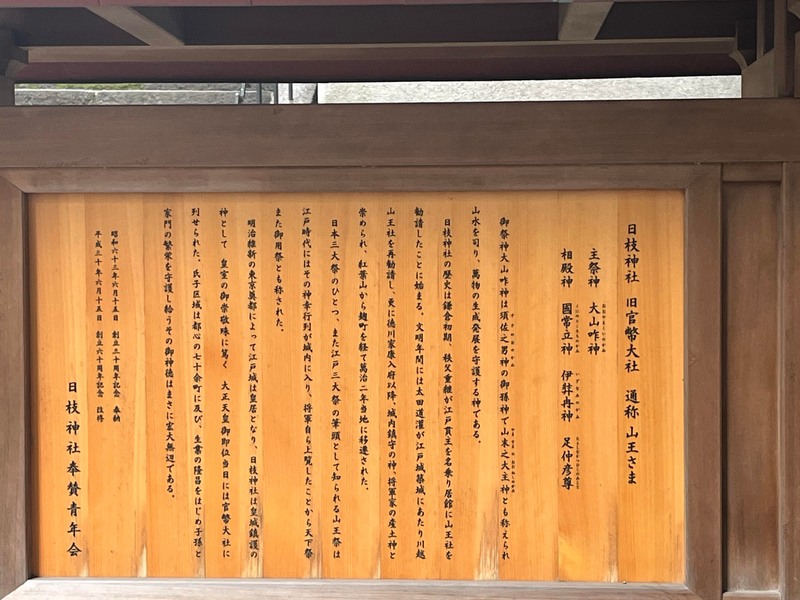 日枝神社 旧官幣大社 通称 山王さま
主祭神 大山咋神
相殿神 國常立神 伊弉冉神 足仲彦尊
御祭神大山咋神は須佐之男神の御孫神で山末之大主神とも称えられ
山水を司り、萬物の生成発展を守護する神である。
日枝神社の歴史は鎌倉初期、秩父重継が江戸貫主を名乗り居館に山王社を
勧請したことに始まる。文明年間には太田道灌が江戸城築城にあたり川越
山王社を再勧請し、更に徳川家康入府以降、城内鎮守の神、将軍家の産土神と
崇められ、紅葉山から麹町を経て萬治二年当地に移遷された。
日本三大祭のひとつ、また江戸三大祭の筆頭として知られる山王祭は
江戸時代にはその神幸行列が城内に入り、将軍自ら上覧したことから天下祭
また御用祭とも称された。
明治維新の東京奠都によって江戸城は皇居となり、日枝神社は皇城鎮護の
神として 皇室の御崇敬殊に篤く 大正天皇御即位当日には官幣大社に
列せられた。氏子区域は都心の七十余町に及び、生業の隆昌をはじめ子孫と
家門の繁栄を守護し給うその御神徳はまさに宏大無辺である。
昭和六十三年六月十五日 創立三十周年記念 奉納
平成三十年六月十五日 創立六十周年記念
日枝神社奉賛青年会